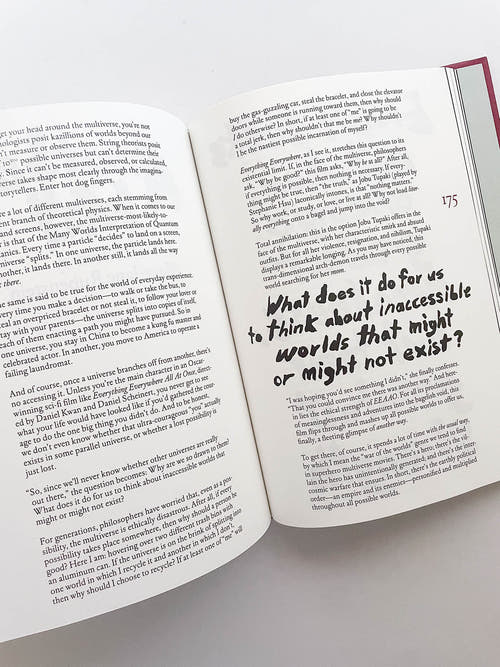 get your head around the multiverse, you're not
ologists posit kazillions of worlds beyond our
n't measure or observe them. String theorists posit
possible universes but can't determine their
Since it can't be measured, observed, or calculated,
verse takes shape most clearly through the imagina-
torytellers. Enter hot dog fingers.
re a lot of different multiverses, each stemming from
ent branch of theoretical physics. When it comes to our
r screens, however, the multiverse-most-likely-to-
r is that of the Many Worlds Interpretation of Quantum
anics. Every time a particle "decides" to land on a screen,
niverse "splits." In one universe, the particle lands here.
nother, it lands there. In another still, it lands all the way
there.
he same is said to be true for the world of everyday experience.
very time you make a decision—to walk or take the bus, to
eal an overpriced bracelet or not steal it, to follow your love or
tay with your parents—the universe splits into copies of itself,
each of them enacting a path you might have pursued. So in
one universe, you stay in China to become a kung fu master and
celebrated actor. In another, you move to America to operate a
failing laundromat.
And of course, once a universe branches off from another, there's
no accessing it. Unless you're the main character in an Oscar-
winning sci-fi film like Everything Everywhere All At Once, direct-
ed by Daniel Kwan and Daniel Scheinert, you never get to see
what your life would have looked like if you'd gathered the cour-
age to do the one big thing you didn't do. And to be honest,
we don't even know whether that ultra-courageous "you" actually
exists in some parallel universe, or whether lost possibility is
just lost.
"So, since we'll never know whether other universes are really
out there," the question becomes: Why are we so drawn to them?
What does it do for us to think about inaccessible worlds that
might or might not exist?
For generations, philosophers have worried that, even as a pos-
sibility, the multiverse is ethically disastrous. After all, if every
possibility takes place somewhere, then why should a person be
good? Here I am: hovering over two different trash bins with
an aluminum can. If the universe is on the brink of splitting into
one world in which I recycle it and another in which I don't,
then why should I choose to recycle? If at least one of "me" will
buy the gas-guzzling car, steal the bracelet, and close the elevator
doors while someone is running toward them, then why should
I do otherwise? In short, if at least one of "me" is going to be
a total jerk, then why shouldn't that me be me? Why shouldn't
I be the nastiest possible incarnation of myself?
Everything Everywhere, as I see it, stretches this question to its
existential limit. If, in the face of the multiverse, philosophers
ask, "Why be good?" this film asks, "Why be at all?" After all,
if everything is possible, then nothing is necessary. If every-
thing might be true, then "the truth," as Jobu Tupaki (played by
Stephanie Hsu) laconically intones, is that "nothing matters."
So why work, or study, or love, or live at all? Why not load liter-
ally everything onto a bagel and jump into the void?
175
Total annihilation: this is the option Jobu Tupaki offers in the
face of the multiverse, with her characteristic smirk and absurd
outfits. But for all her violence, resignation, and nihilism, Tupaki
displays a remarkable longing. As you may have noticed, this
trans-dimensional arch-demon travels through every possible
world searching for her mom.
What does it do for us
to think about inaccessible
worlds that might
or might not exist?
"I was hoping you'd see something I didn't," she finally confesses.
"That you could convince me there was another way." And here-
in lies the ethical strength of EEAAO. For all its proclamations
of meaninglessness and adventures into the bagelish void, this
film flips through and mashes up all possible worlds to offer us,
finally, a fleeting glimpse of another way.
To get there, of course, it spends a lot of time with the usual way,
by which I mean the "war of the worlds" genre we tend to find
in superhero multiverse movies. There's a hero; there's the vil-
lain the hero has unintentionally generated; and there's the inter-
cosmic warfare that ensues. In short, there's the earthly political
order—an empire and its enemies—personified and multiplied
throughout all possible worlds.